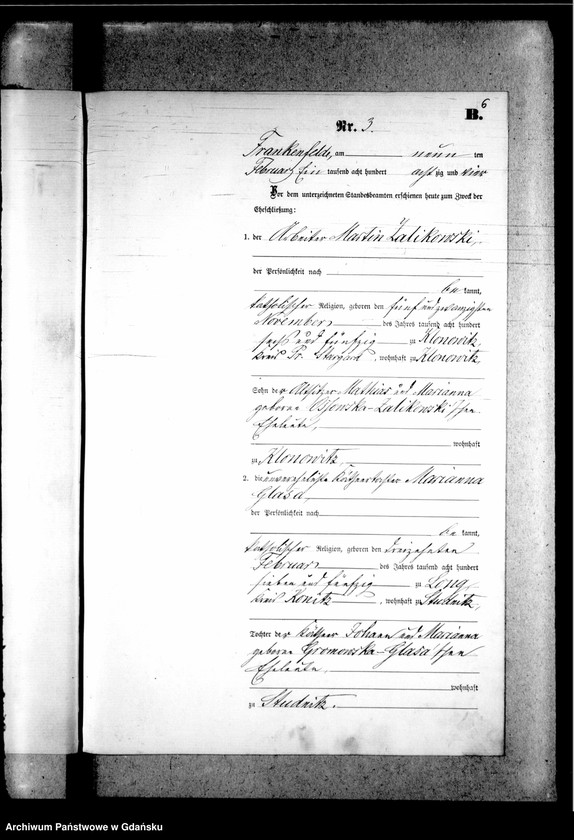 6
B.
Nr. 3.
Frankenfelde, am neun ten
Februar Ein tausend acht hundert acht zig und vier
Vor dem unterzeichneten Standesbeamten erschienen heute zum Zweck der
Eheschließung:
1. der Arbeiter Martin Zalikowski,
der Persönlichkeit nach
be kannt,
katholischer Religion, geboren den fünf und zwanzigsten
November des Jahres tausend acht hundert
sechs und fünfzig zu Klonowitz,
Kreis Pr. Stargard, wohnhaft zu Klonowitz,
Sohn der Altsitzer Mathias und Marianna
geborene Ossowska-Zalikowski'schen
Eheleute,
wohnhaft
zu Klonowitz,
2. die unverehelichte Käthnertochter Marianna
Glasa,
der Persönlichkeit nach
be kannt,
katholischer Religion, geboren den dreizehnten
Februar des Jahres tausend acht hundert
sieben und fünfzig zu Long,
Kreis Konitz, wohnhaft zu Studnitz,
Tochter der Käthner Johann und Marianna
geborene Gromowska-Glasa'schen
Eheleute,
wohnhaft
zu Studnitz.
Archiwum Państwowe w Gdańsku